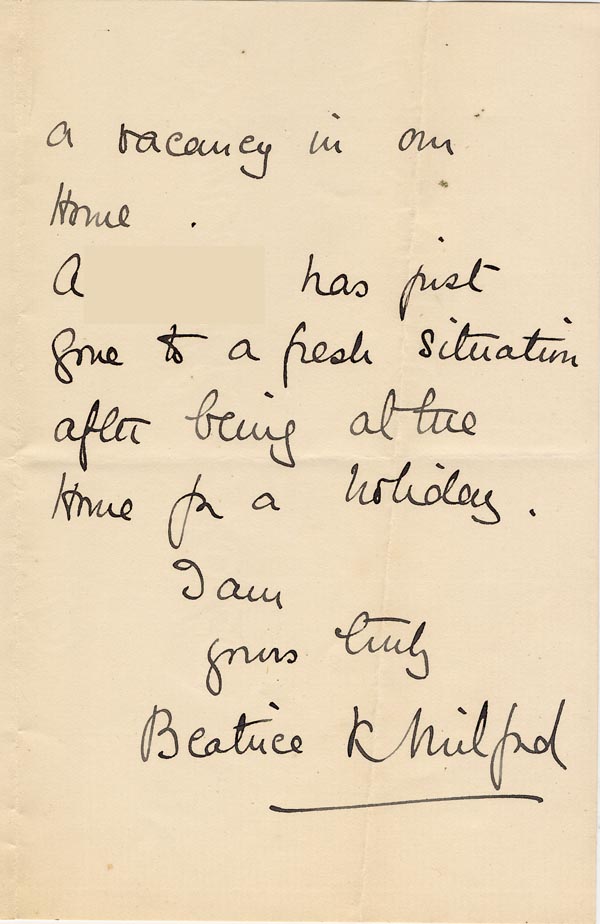 a vacancy in our
Home .
A has just
gone to a fresh situation
after being at the
Home for a holiday .
I am
yours truly
Beatrice K Milford